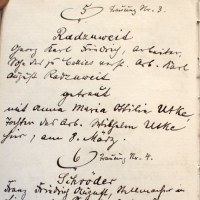 5 Trauung Nr. 3.
Radzuweit
Georg Karl Friedrich, Arbeiter,
Sohn des zu verst. Arb. Karl
August Radzuweit
getraut
mit Anna Maria Ottilie Utke
Tochter des Arb. Wilhelm Utke
hier, am 8. März.
6 Trauung Nr. 4.
Schröder
Franz Friedrich August,